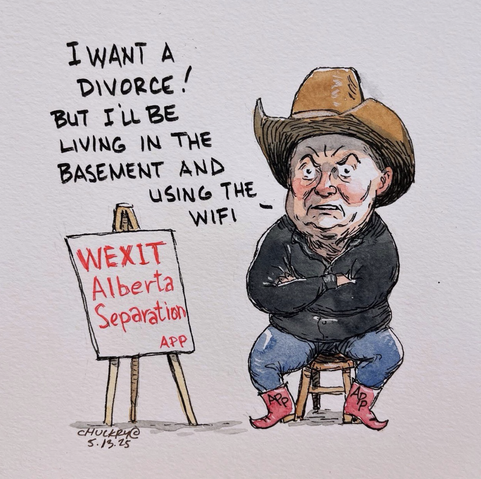 I WANT A
DIVORCE!
BUT I'LL BE
LIVING IN THE
BASEMENT AND
USING THE
WIFI
WEXIT
Alberta
Separation
APP
APP
APP
CHUCKRY©
5.13.25